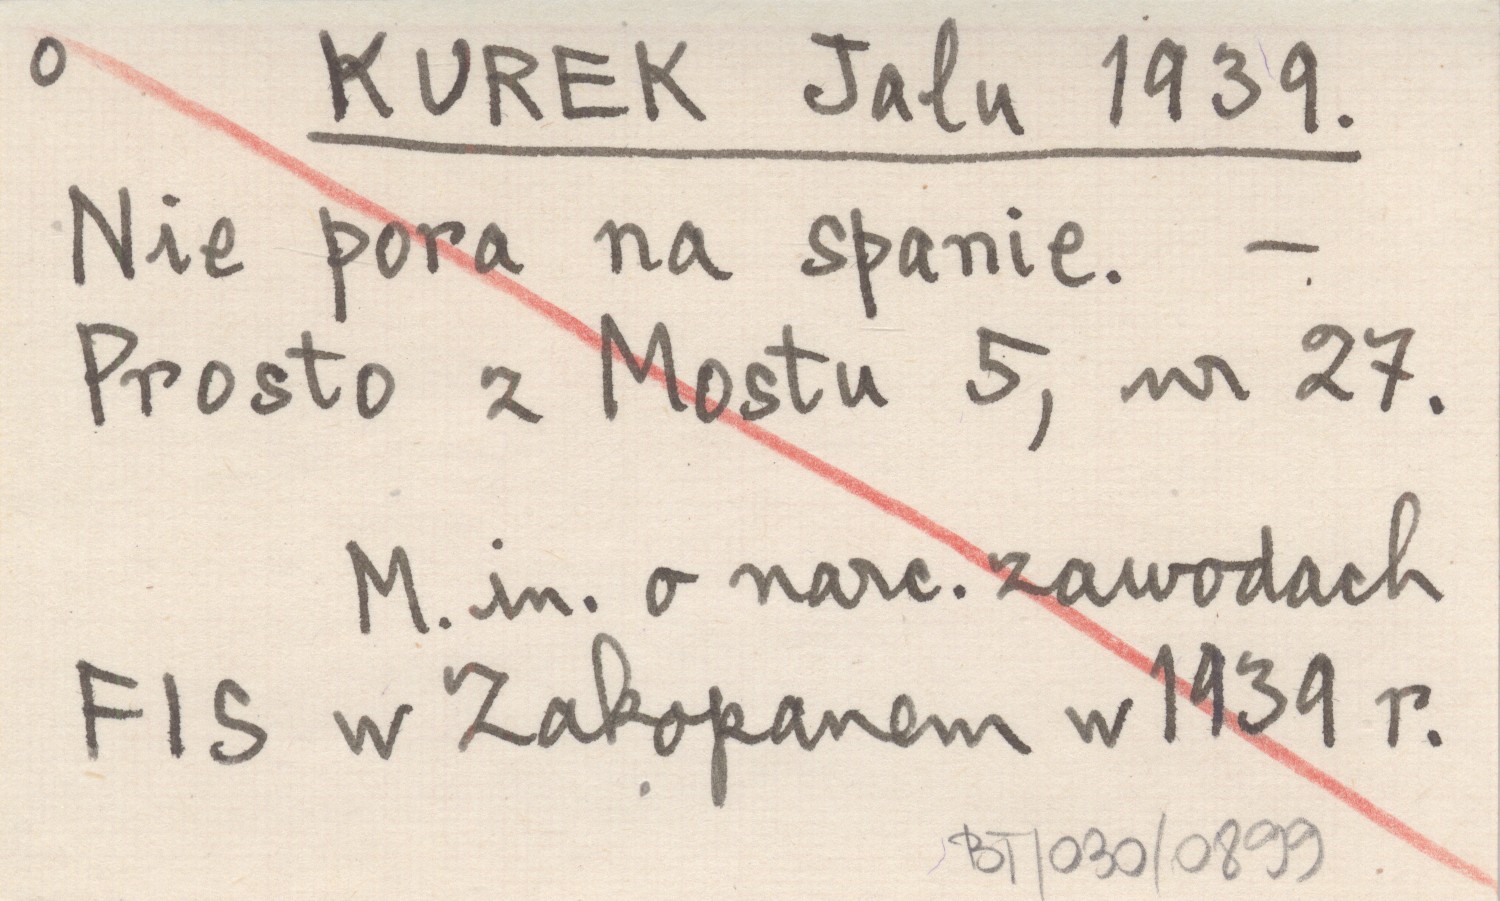 o KUREK Jalu 1939.
Nie pora na spanie. -
Prosto z Mostu 5, nr 27.
M. in. o narc. zawodach
FIS w Zakopanem w 1939 r.
BT/030/0899